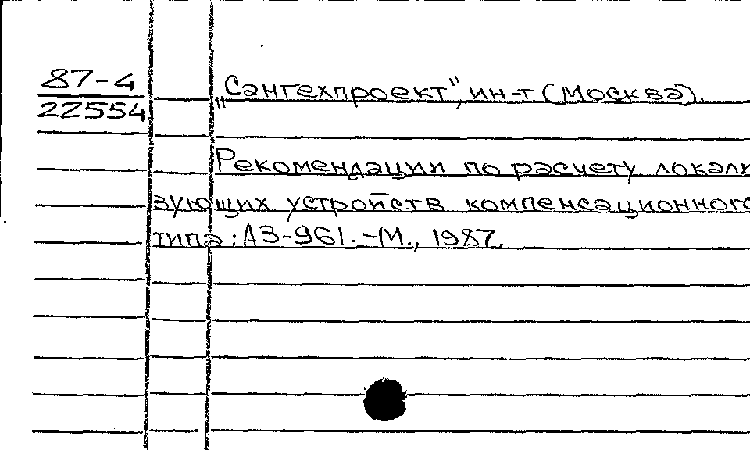 87-4
22554
„Сантехпроект", ин-т (Москва).
Рекомендации по расчету локали
зующих устройств компенсационного
типа: А3-961. -М., 1987.